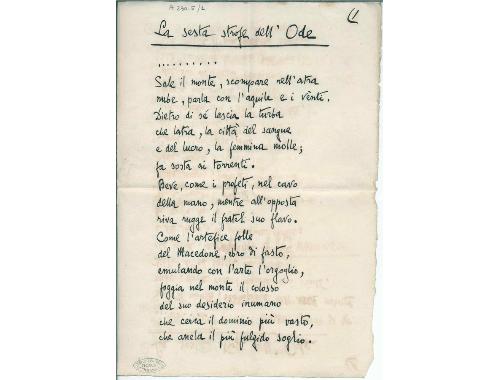 A 230.5/1
La sesta strofe dell' Ode
..........
Sale il monte, scompare nell'atra
nube, parla con l'aquile e i vènti.
Dietro di sé lascia la turba
che latra, la città del sangue
e del lucro, la femmina molle;
fa sosta ai torrenti.
Beve, come i profeti, nel cavo
della mano, mentre all'opposta
riva rugge il fratel suo flavo.
Come l'artefice folle
del Macedone, ebro di fasto,
emulando con l'arte l'orgoglio,
foggia nel monte il colosso
del suo desiderio inumano
che cerca il dominio più vasto,
che anela il più fulgido soglio.